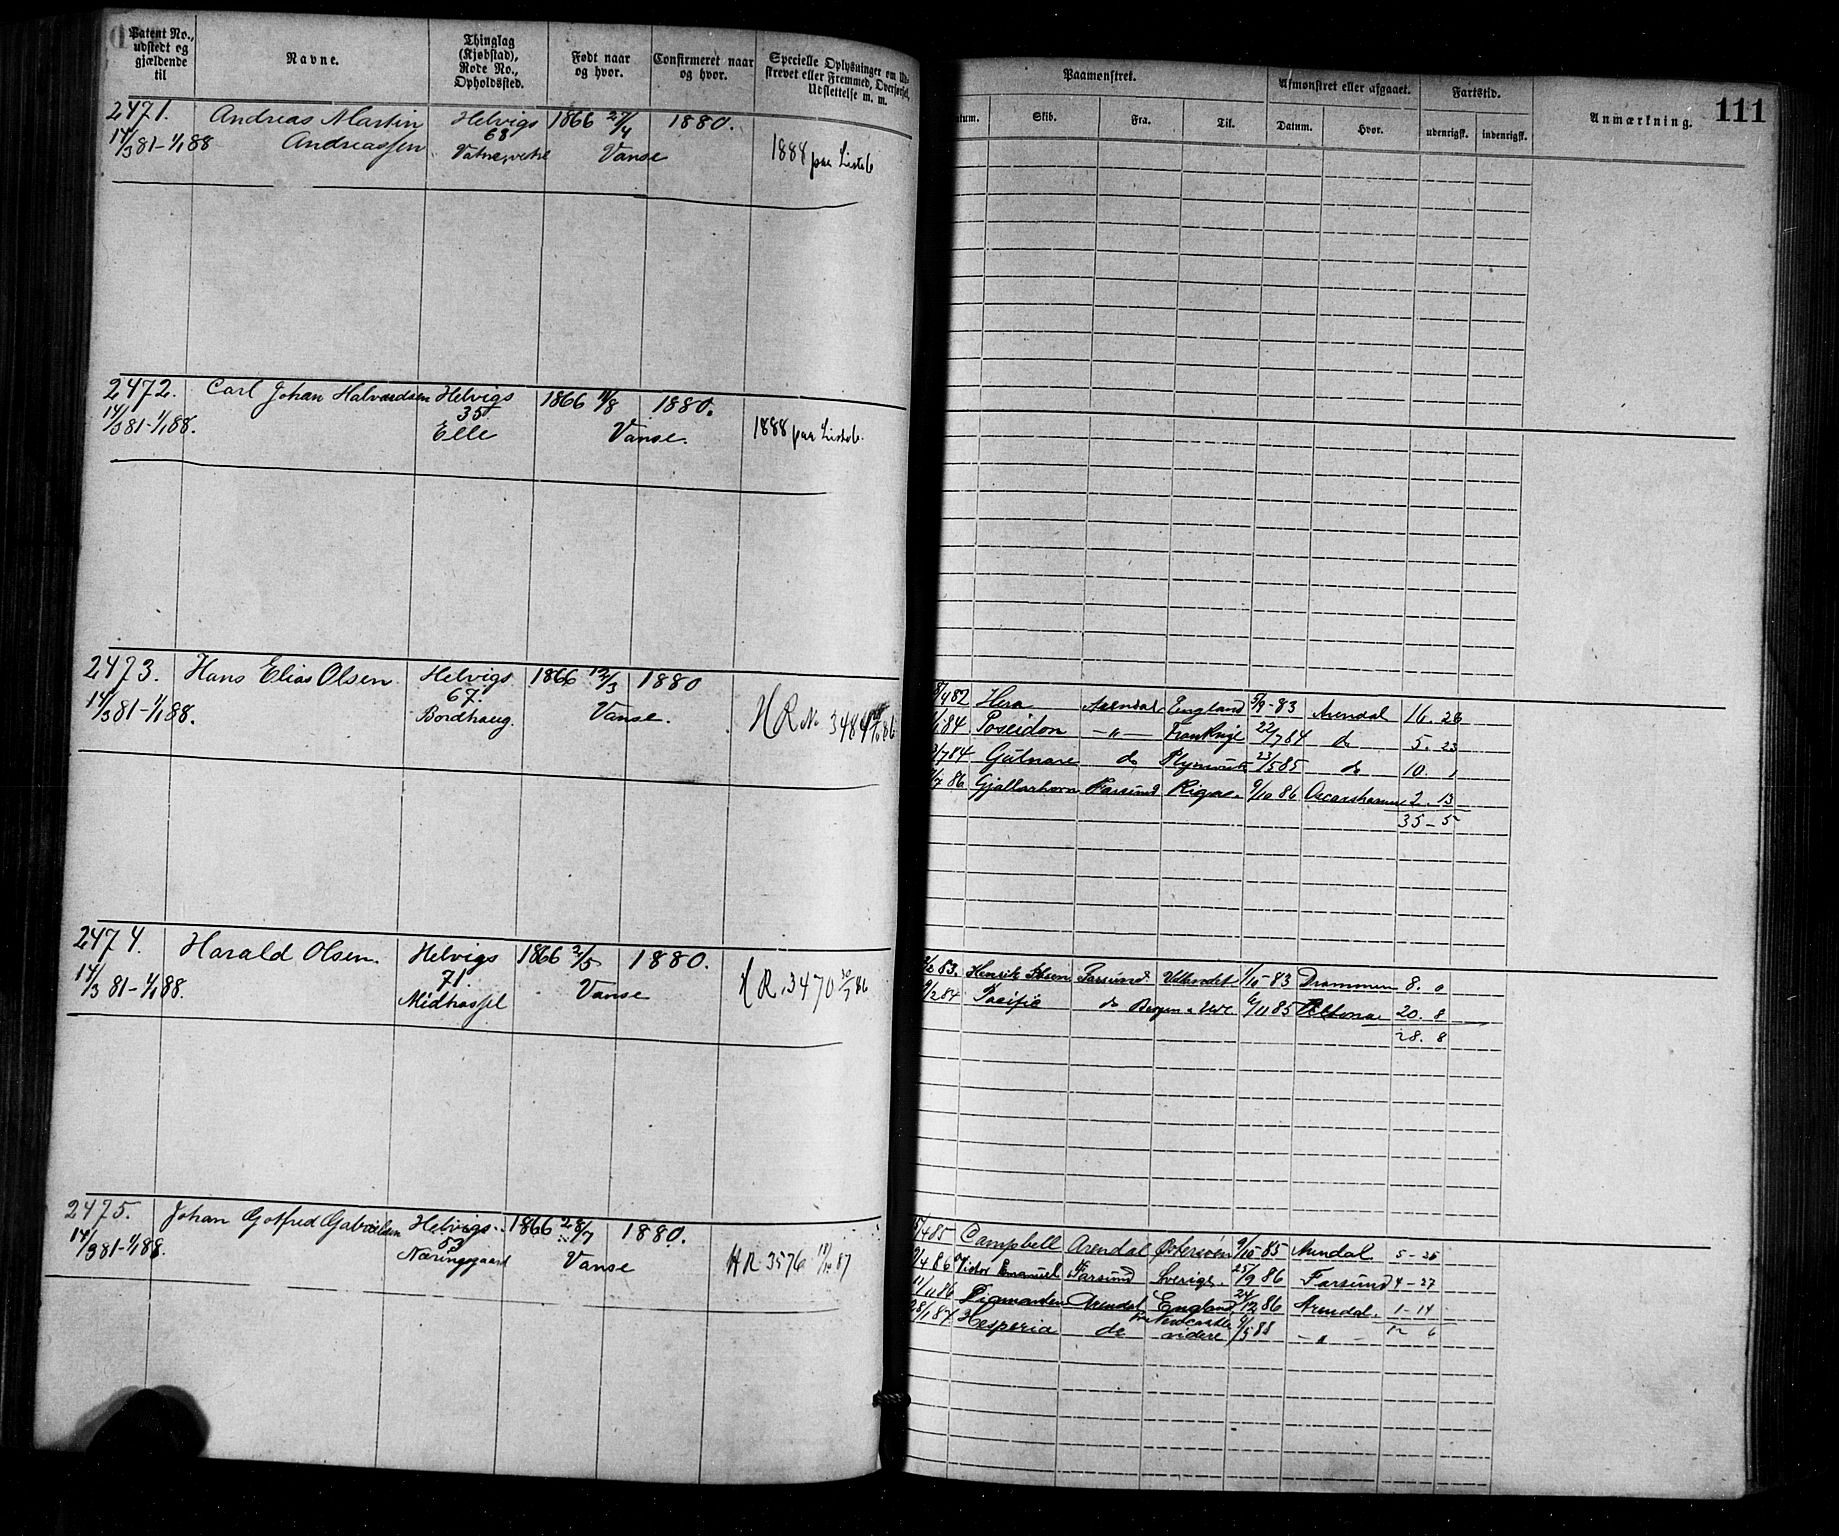 Patent No., udstedt og gjældende til
Navne.
Thinglag (Kjøbstad), Rode No., Opholdssted.
Født naar og hvor.
Confirmeret naar og hvor.
Specielle Oplysninger om Ud-
strevet eller Fremmed, Overførsel,
Udslettelse m. m.
Paamønstret.
Afmønstret eller afgaaet.
Fartstid.
Anmærkning.
111
atum.
Skib.
Fra.
Til.
Datum.
Hvor.
udenrigsk.
indenrigsk.
2471. Andreas Martin Helvigs 1866 27/4 1880.
14/3 81-1/1 88 Andreassen 68 Vanse
1888 paa Listeb
2472. Carl Johan Halvardsen Helvigs 1866 11/8 1880.
14/3 81-1/1 88. 35
Elle Vanse. 1888 paa Listeb.
2473. Hans Elias Olsen Helvigs 1866 12/3 1880
14/3 81-1/1 88. 67.
Bordhaug. Vanse. HR No 3484 86
82 Hera Arendal England 5/9-83 Arendal 16. 26
84 Poseidon —"— Frankrige 22/7 84 do 5. 23
/7 84 Gulnare do Plymouth 23/5 85 do 10. "
/7 86 Gjallarhorn Farsund Riga. 9/10 86 Oscarshamn 2. 13
35-5
2474. Harald Olsen. Helvigs 1866 2/5 1880.
14/3 81-1/1 88. 71
Midhassel Vanse HR. 3470 30/7 86
83. Henrik Ibsen Farsund Udlandet 1/10-83 Drammen 8. 0
/2 84 Pacific do Bergen 6/11 85 Altona 20. 8
28. 8
2475. Johan Gotfred Gabrielsen Helvigs. 1866 28/7 1880.
14/3 81-1/1 88. 53
Næringsgaard Vanse HR 3576 87
/4 85 Campbell Arendal Østersøen 9/10-85 Arendal. 5-26
/4 86 Victor Emanuel Farsund Sverige. 25/9 86 Farsund 4-27
11/11 86 Arendal England 24/12 86 Arendal. 1-14
28/1 87 Hesperia do Newcastle videre 4/5 88 — " — 12 6